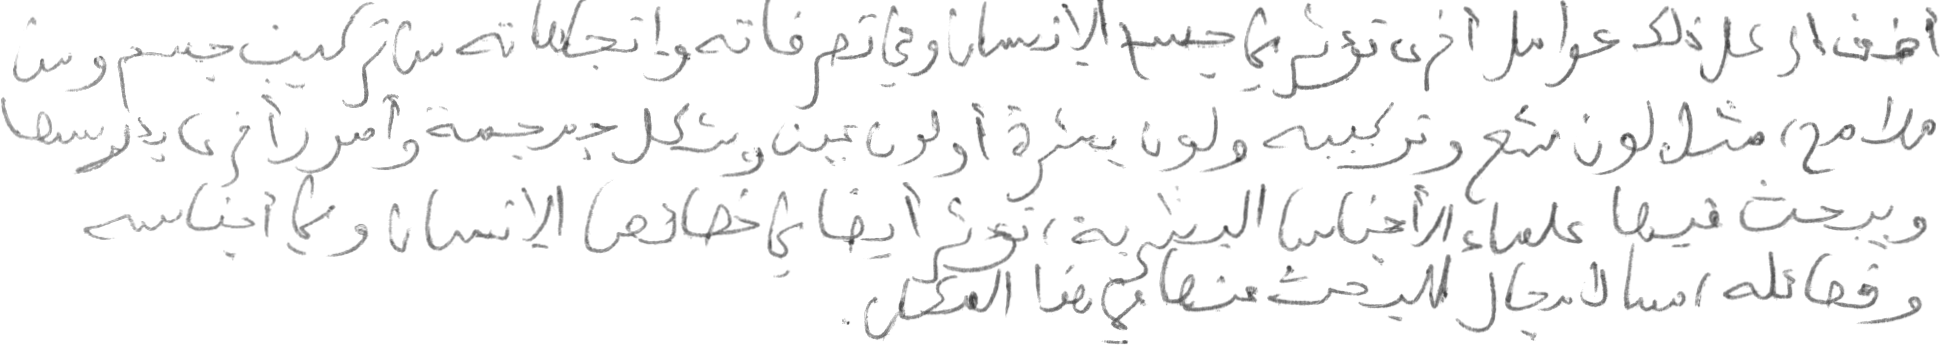 أضف إلى ذلك عوامل أخرى تؤثر في جسم الإنسان وفي تصرفاته واتجاهاته من تركيب جسم ومن
ملامح، مثل لون شعر وتركيبه ولون بشرة أو لون عين وشكل جمجمة وأمور أخرى يدرسها
ويبحث فيها علماء الأجناس البشرية، تؤثر أيضا في خصائص الإنسان وفي أجناسه
وفصائله، مما لا مجال للبحث عنها في هذا الفصل.